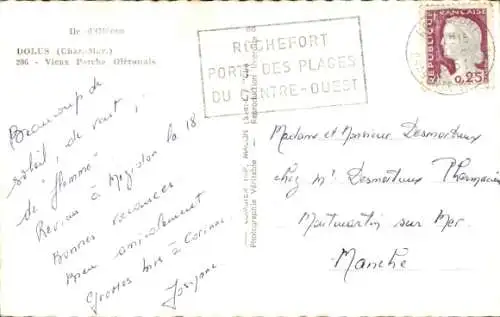 Ile d'Oléron
DOLUS (Char.-Mar.)
206 - Vieux Porche Oléronais
ROCHEFORT
PORTE DES PLAGES
DU CENTRE-OUEST
REPUBLIQUE FRANÇAISE
0,25
Beaucoup de
soleil, de vent,
de "flemme"
Reviens à le 18
Bonnes vacances
Bien amicalement
Grosses bises à Corinne
Josyane
Photographie Véritable - Reproduction interdite
Madame et Monsieur Desmortreux
chez Mr Desmortreux Pharmacien
Montmartin sur Mer
Manche